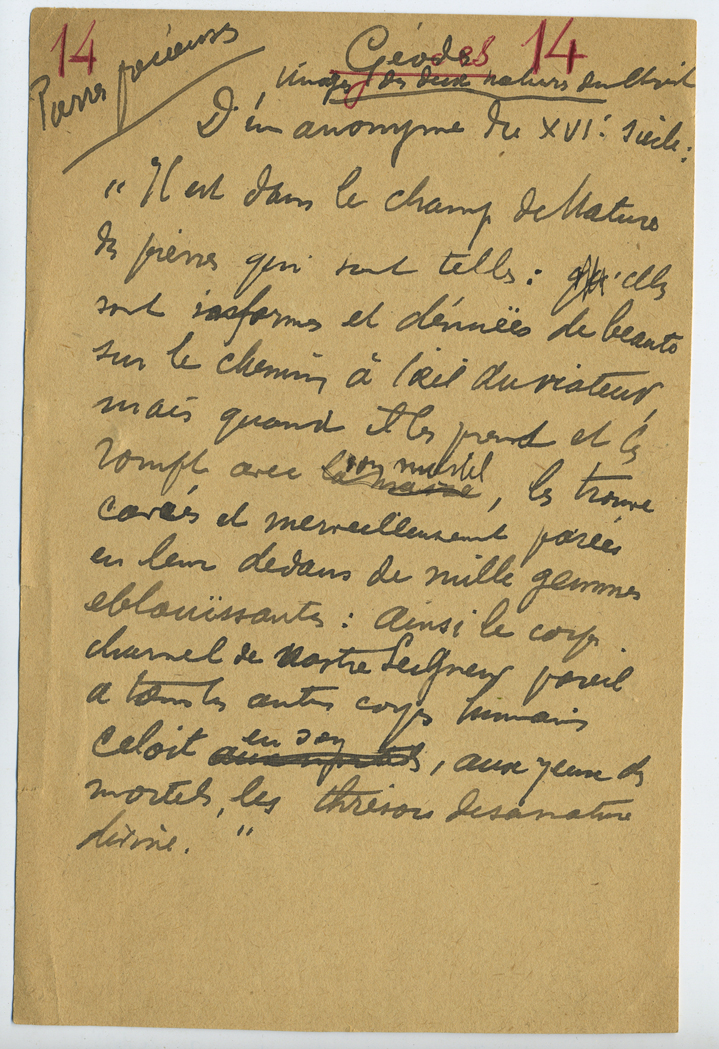 14 Géodes 14
Pierres précieuses
images des deux natures du Christ
D'un anonyme du XVIe siècle :
" Il est dans le champ de Nature
des pierres qui sont telles : elles
sont informes et dénuées de beauté
sur le chemin à l'œil du viateur,
mais quand il les prend et les
rompt avec son martel, les trouve
cavées et merveilleusement parées
en leur dedans de mille gemmes
eblouissantes : ainsi le corps
charnel de Nostre Seigneur pareil
a tous les autres corps humains
celoit en soy, aux yeux des
mortels, les thrésors de sa nature
divine. "